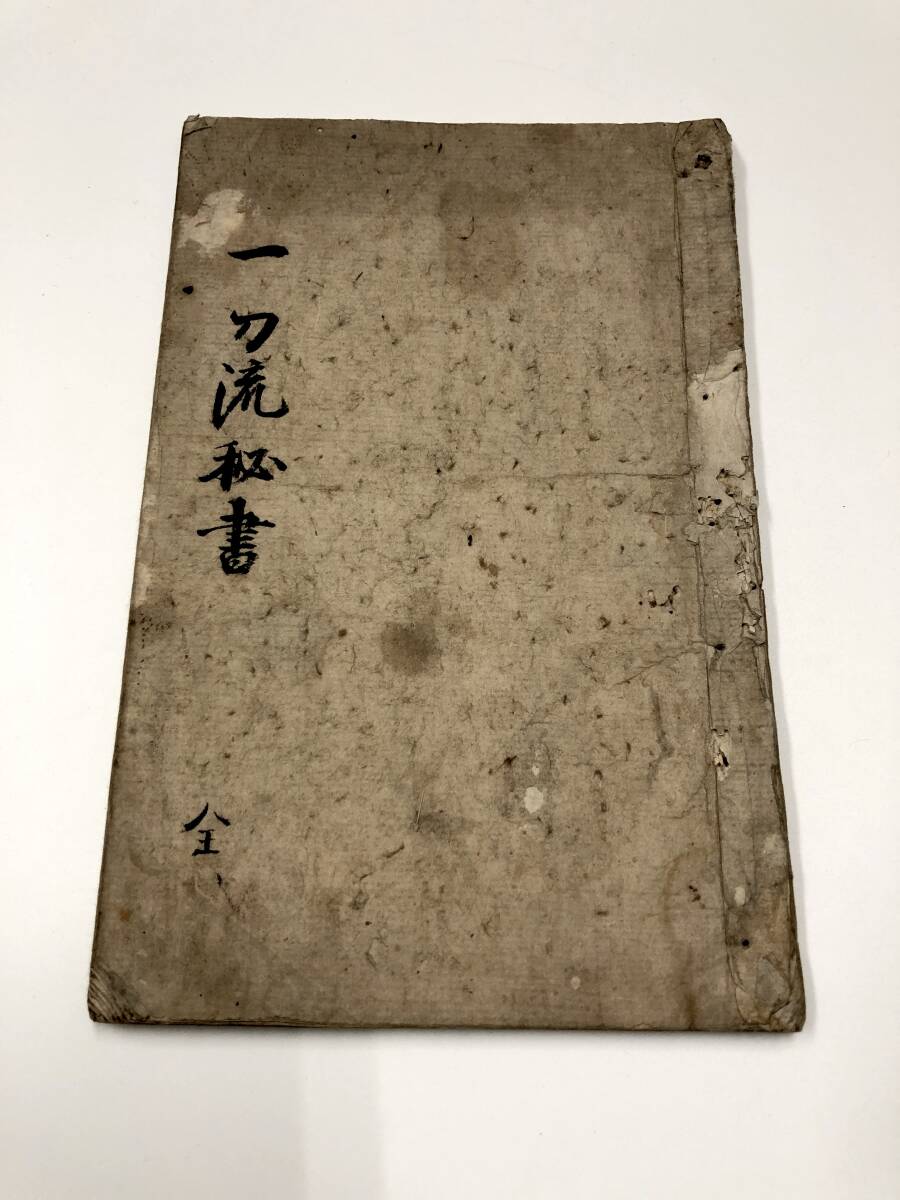 一刀流秘書
全